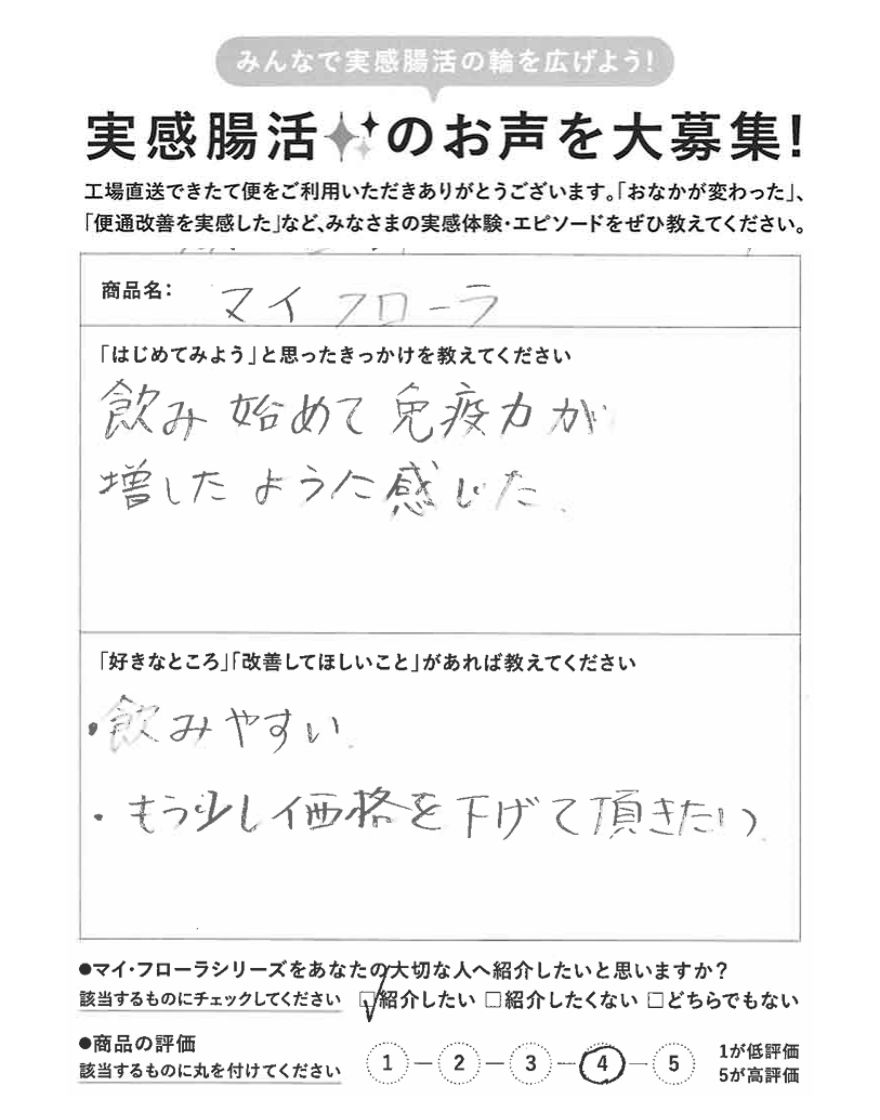 みんなで実感腸活の輪を広げよう!
実感腸活のお声を大募集!
工場直送できたて便をご利用いただきありがとうございます。「おなかが変わった」、
「便通改善を実感した」など、みなさまの実感体験・エピソードをぜひ教えてください。
商品名: マイフローラ
「はじめてみよう」と思ったきっかけを教えてください
飲み始めて免疫力が
増したように感じた、
「好きなところ」「改善してほしいこと」があれば教えてください
・飲みやすい、
・もう少し価格を下げて頂きたい、
●マイ・フローラシリーズをあなたの大切な人へ紹介したいと思いますか?
該当するものにチェックしてください ☑紹介したい □紹介したくない □どちらでもない
●商品の評価
該当するものに丸を付けてください 1 2 3 4 5
1が低評価
5が高評価